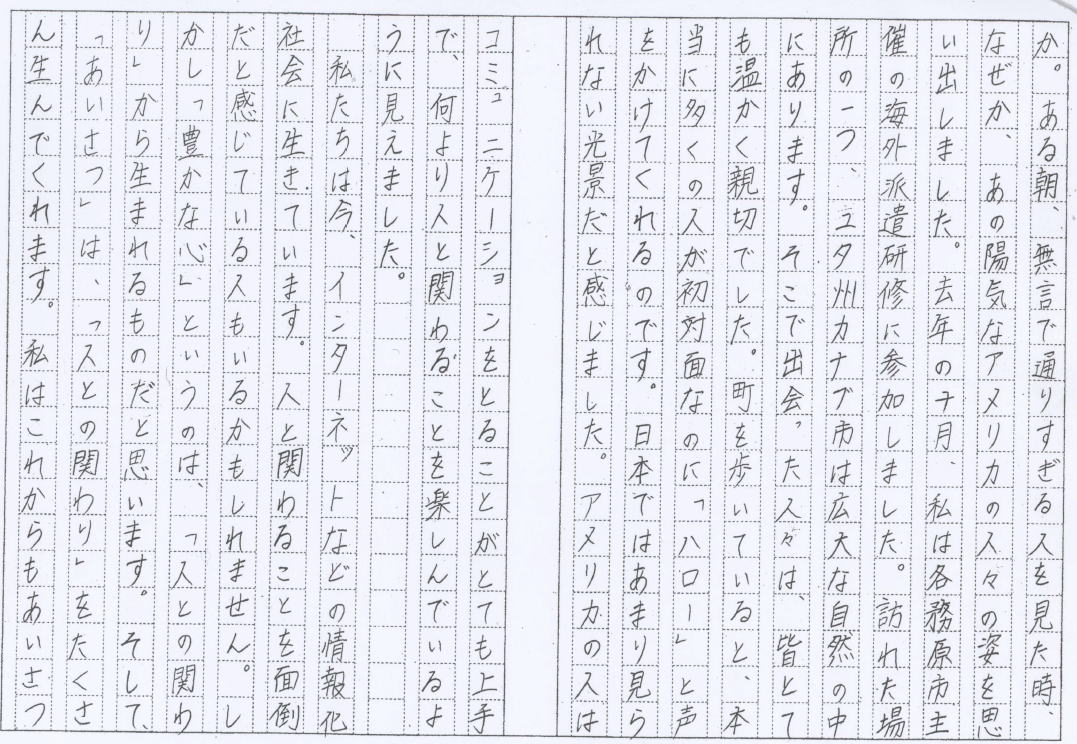 か。ある朝、無言で通りすぎる人を見た時、
なぜか、あの陽気なアメリカの人々の姿を思
い出しました。去年の十月、私は各務原市主
催の海外派遣研修に参加しました。訪れた場
所の一つ、ユタ州カナブ市は広大な自然の中
にあります。そこで出会った人々は、皆とて
も温かく親切でした。町を歩いていると、本
当に多くの人が初対面なのに「ハロー」と声
をかけてくれるのです。日本ではあまり見ら
れない光景だと感じました。アメリカの人は
コミュニケーションをとることがとても上手
で、何より人と関わることを楽しんでいるよ
うに見えました。
私たちは今、インターネットなどの情報化
社会に生きています。人と関わることを面倒
だと感じている人もいるかもしれません。し
かし「豊かな心」というのは、「人との関わ
り」から生まれるものだと思います。そして、
「あいさつ」は、「人との関わり」をたくさ
ん生んでくれます。私はこれからもあいさつ